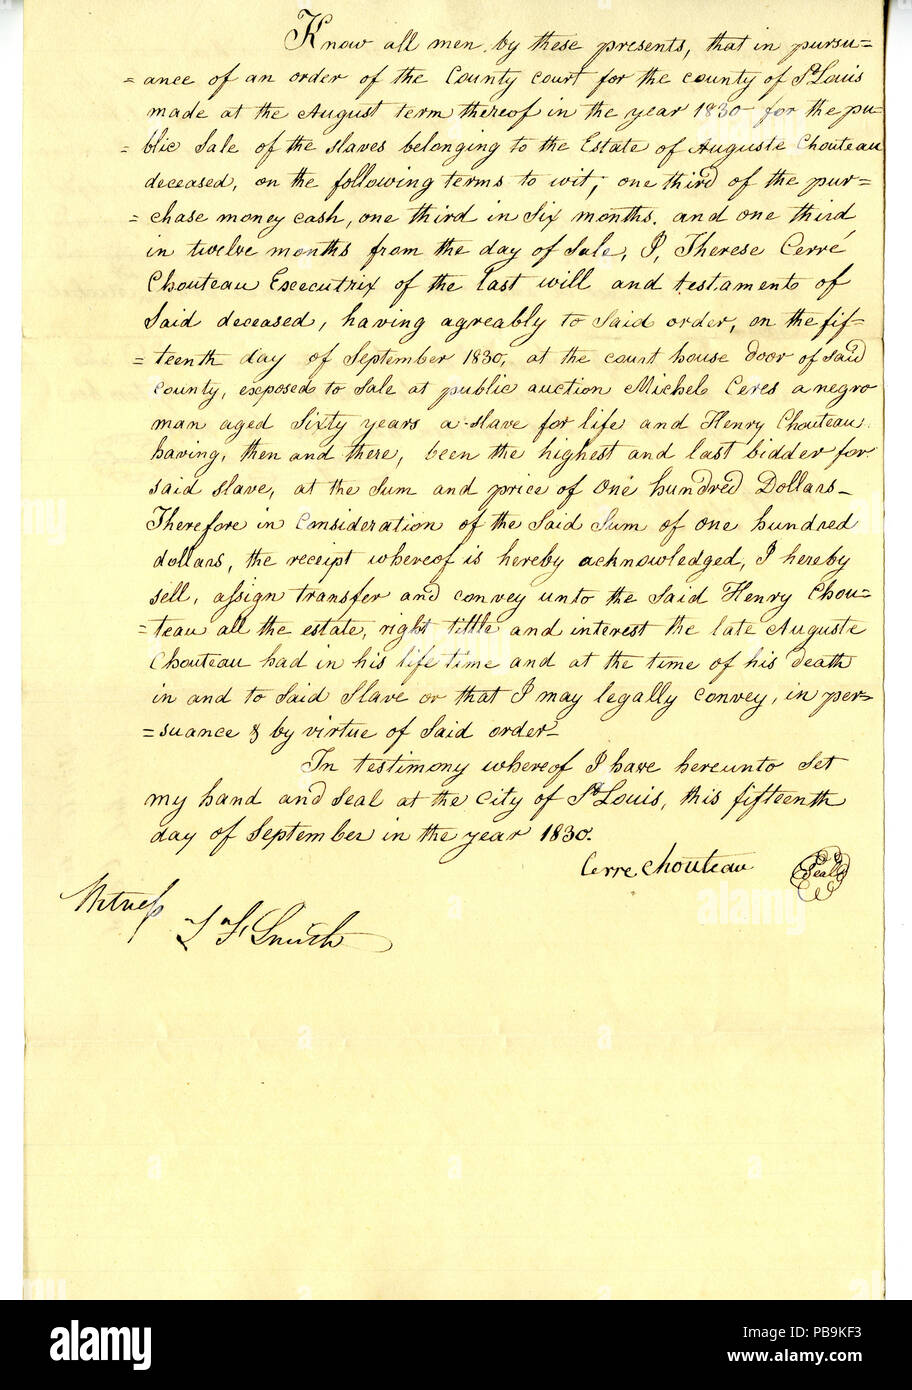 Know all men by these presents, that in pursu=
=ance of an order of the County court for the county of St Louis
made at the August term thereof in the year 1830 for the pu=
=blic Sale of the slaves belonging to the Estate of Auguste Chouteau
deceased, on the following terms to wit; one third of the pur=
=chase money cash, one third in Six months. and one third
in twelve months from the day of Sale, I, Therese Cerré
Chouteau Excecutrix of the last will and testament of
Said deceased, having agreably to Said order, on the fif=
=teenth day of September 1830, at the court house door of said
County, exposed to Sale at public auction Michel Ceres a negro
man aged Sixty years a slave for life and Henry Chouteau
having, then and there, been the highest and last bidder for
said slave, at the Sum and price of One hundred Dollars_
Therefore in Consideration of the Said Sum of one hundred
dollars, the receipt whereof is hereby acknowledged, I hereby
sell, assign transfer and convey unto the Said Henry Chou=
=teau all the estate, right tittle and interest the late Auguste
Chouteau had in his life time and at the time of his death
in and to Said Slave or that I may legally convey, in per=
=suance & by virtue of Said order_
In testimony whereof I have hereunto Set
my hand and seal at the City of St Louis, this fifteenth
day of September in the year 1830.
Cerre Chouteau Seal
Witness
L F Smith
alamy
Image ID: PB9KF3
www.alamy.com